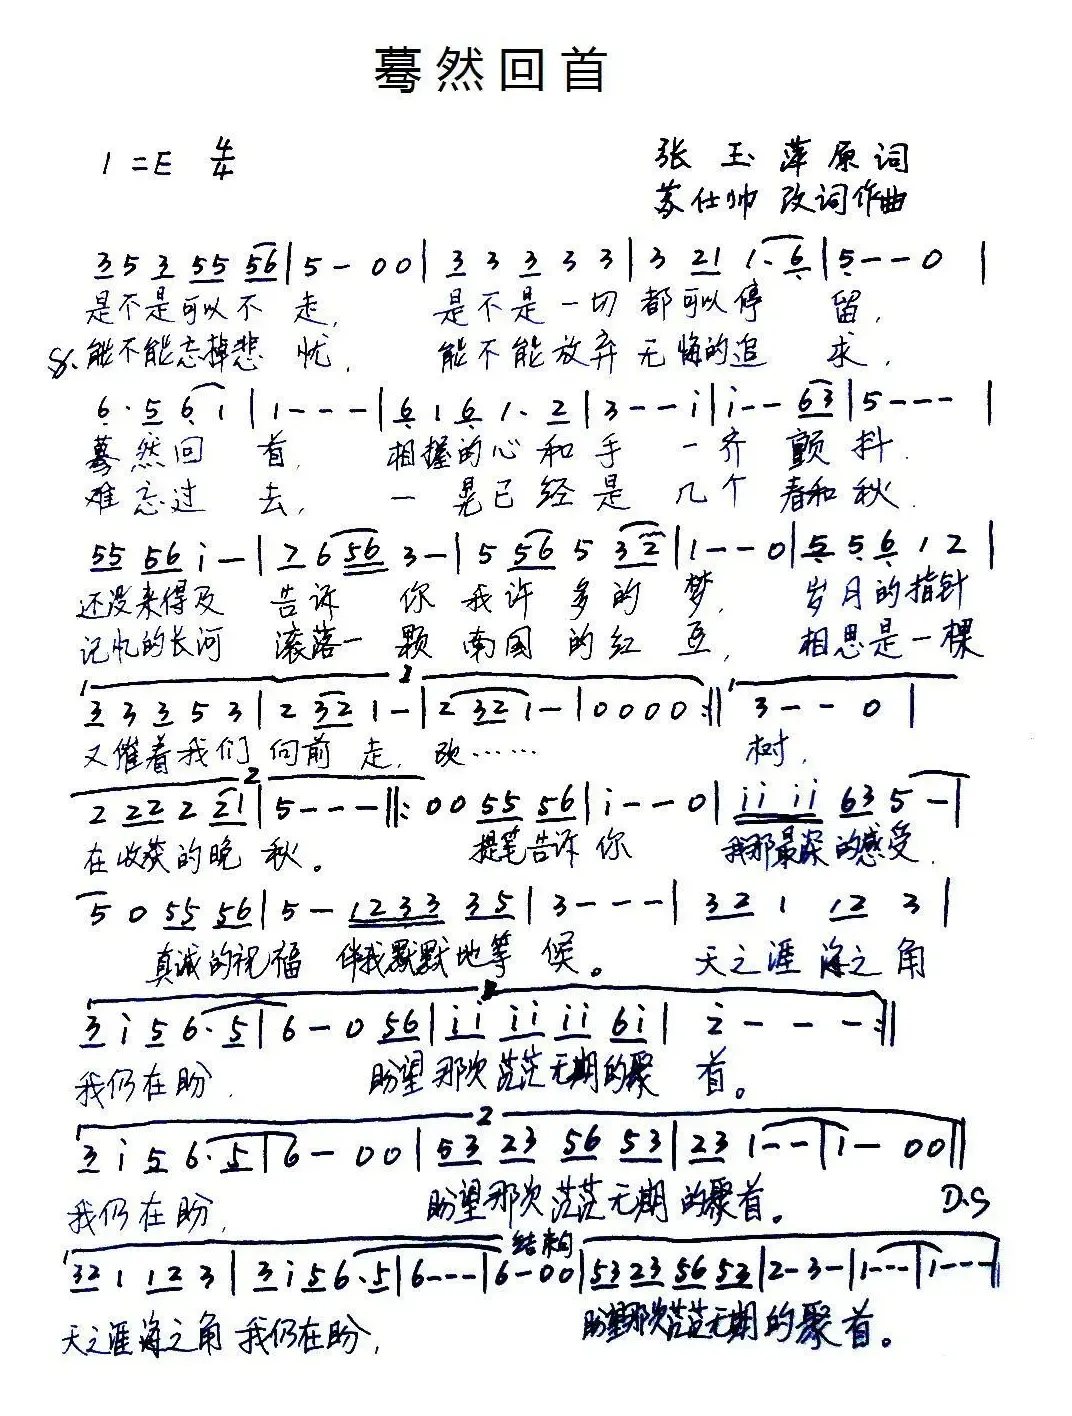 蓦然回首
1=E 4/4
张玉萍原词
苏仕帅 改词作曲
3 5 3 55 56 | 5 - 0 0 | 3 3 3 3 3 | 3 21 1. 6 | 5 - - 0 |
是不是可以不 走, 是不是一切 都可以停 留,
能不能忘掉悲 忧, 能不能放弃无悔的追 求,
6 · 5 6 1 | 1 - - - | 6 1 6 1 · 2 | 3 - - i | i - - 63 | 5 - - - |
蓦然回 首, 相握的心和手 一齐颤抖.
难忘过去, 一晃已经是几个春和秋.
55 56 i - | 7 6 56 3 - | 5 56 5 32 | 1 - - 0 | 5 5 6 1 2 |
还没来得及 告诉 你我许多的梦, 岁月的指针
记忆的长河 滚落一颗南国的红豆, 相思是一棵
1 2 1
3 3 3 5 3 | 2 32 1 - | 2 32 1 - | 0 0 0 0 :‖ 3 - - 0 |
又催着我们向前走, 改…… 树,
2
2 22 2 21 | 5 - - - ‖: 0 0 55 56 | i - - 0 | ii ii 63 5 - |
在收获的晚秋。 提笔告诉你 我那最深的感受,
5 0 55 56 | 5 - 1233 35 | 3 - - - | 32 1 12 3 |
真诚的祝福 伴我默默地等候。 天之涯海之角
1
3 i 5 6 · 5 | 6 - 0 56 | ii ii ii 6i | 2 - - - :‖
我仍在盼, 盼望那次茫茫无期的聚首。
2
3 i 5 6 · 5 | 6 - 0 0 | 53 23 56 53 | 23 1 - - | 1 - 0 0 ‖
我仍在盼, 盼望那次茫茫无期的聚首。 D.S
1 结束句
32 1 12 3 | 3 i 5 6 · 5 | 6 - - - | 6 - 0 0 | 53 23 56 53 | 2 - 3 - | 1 - - - | 1 - - - |
天之涯海之角我仍在盼, 盼望那次茫茫无期的聚首。